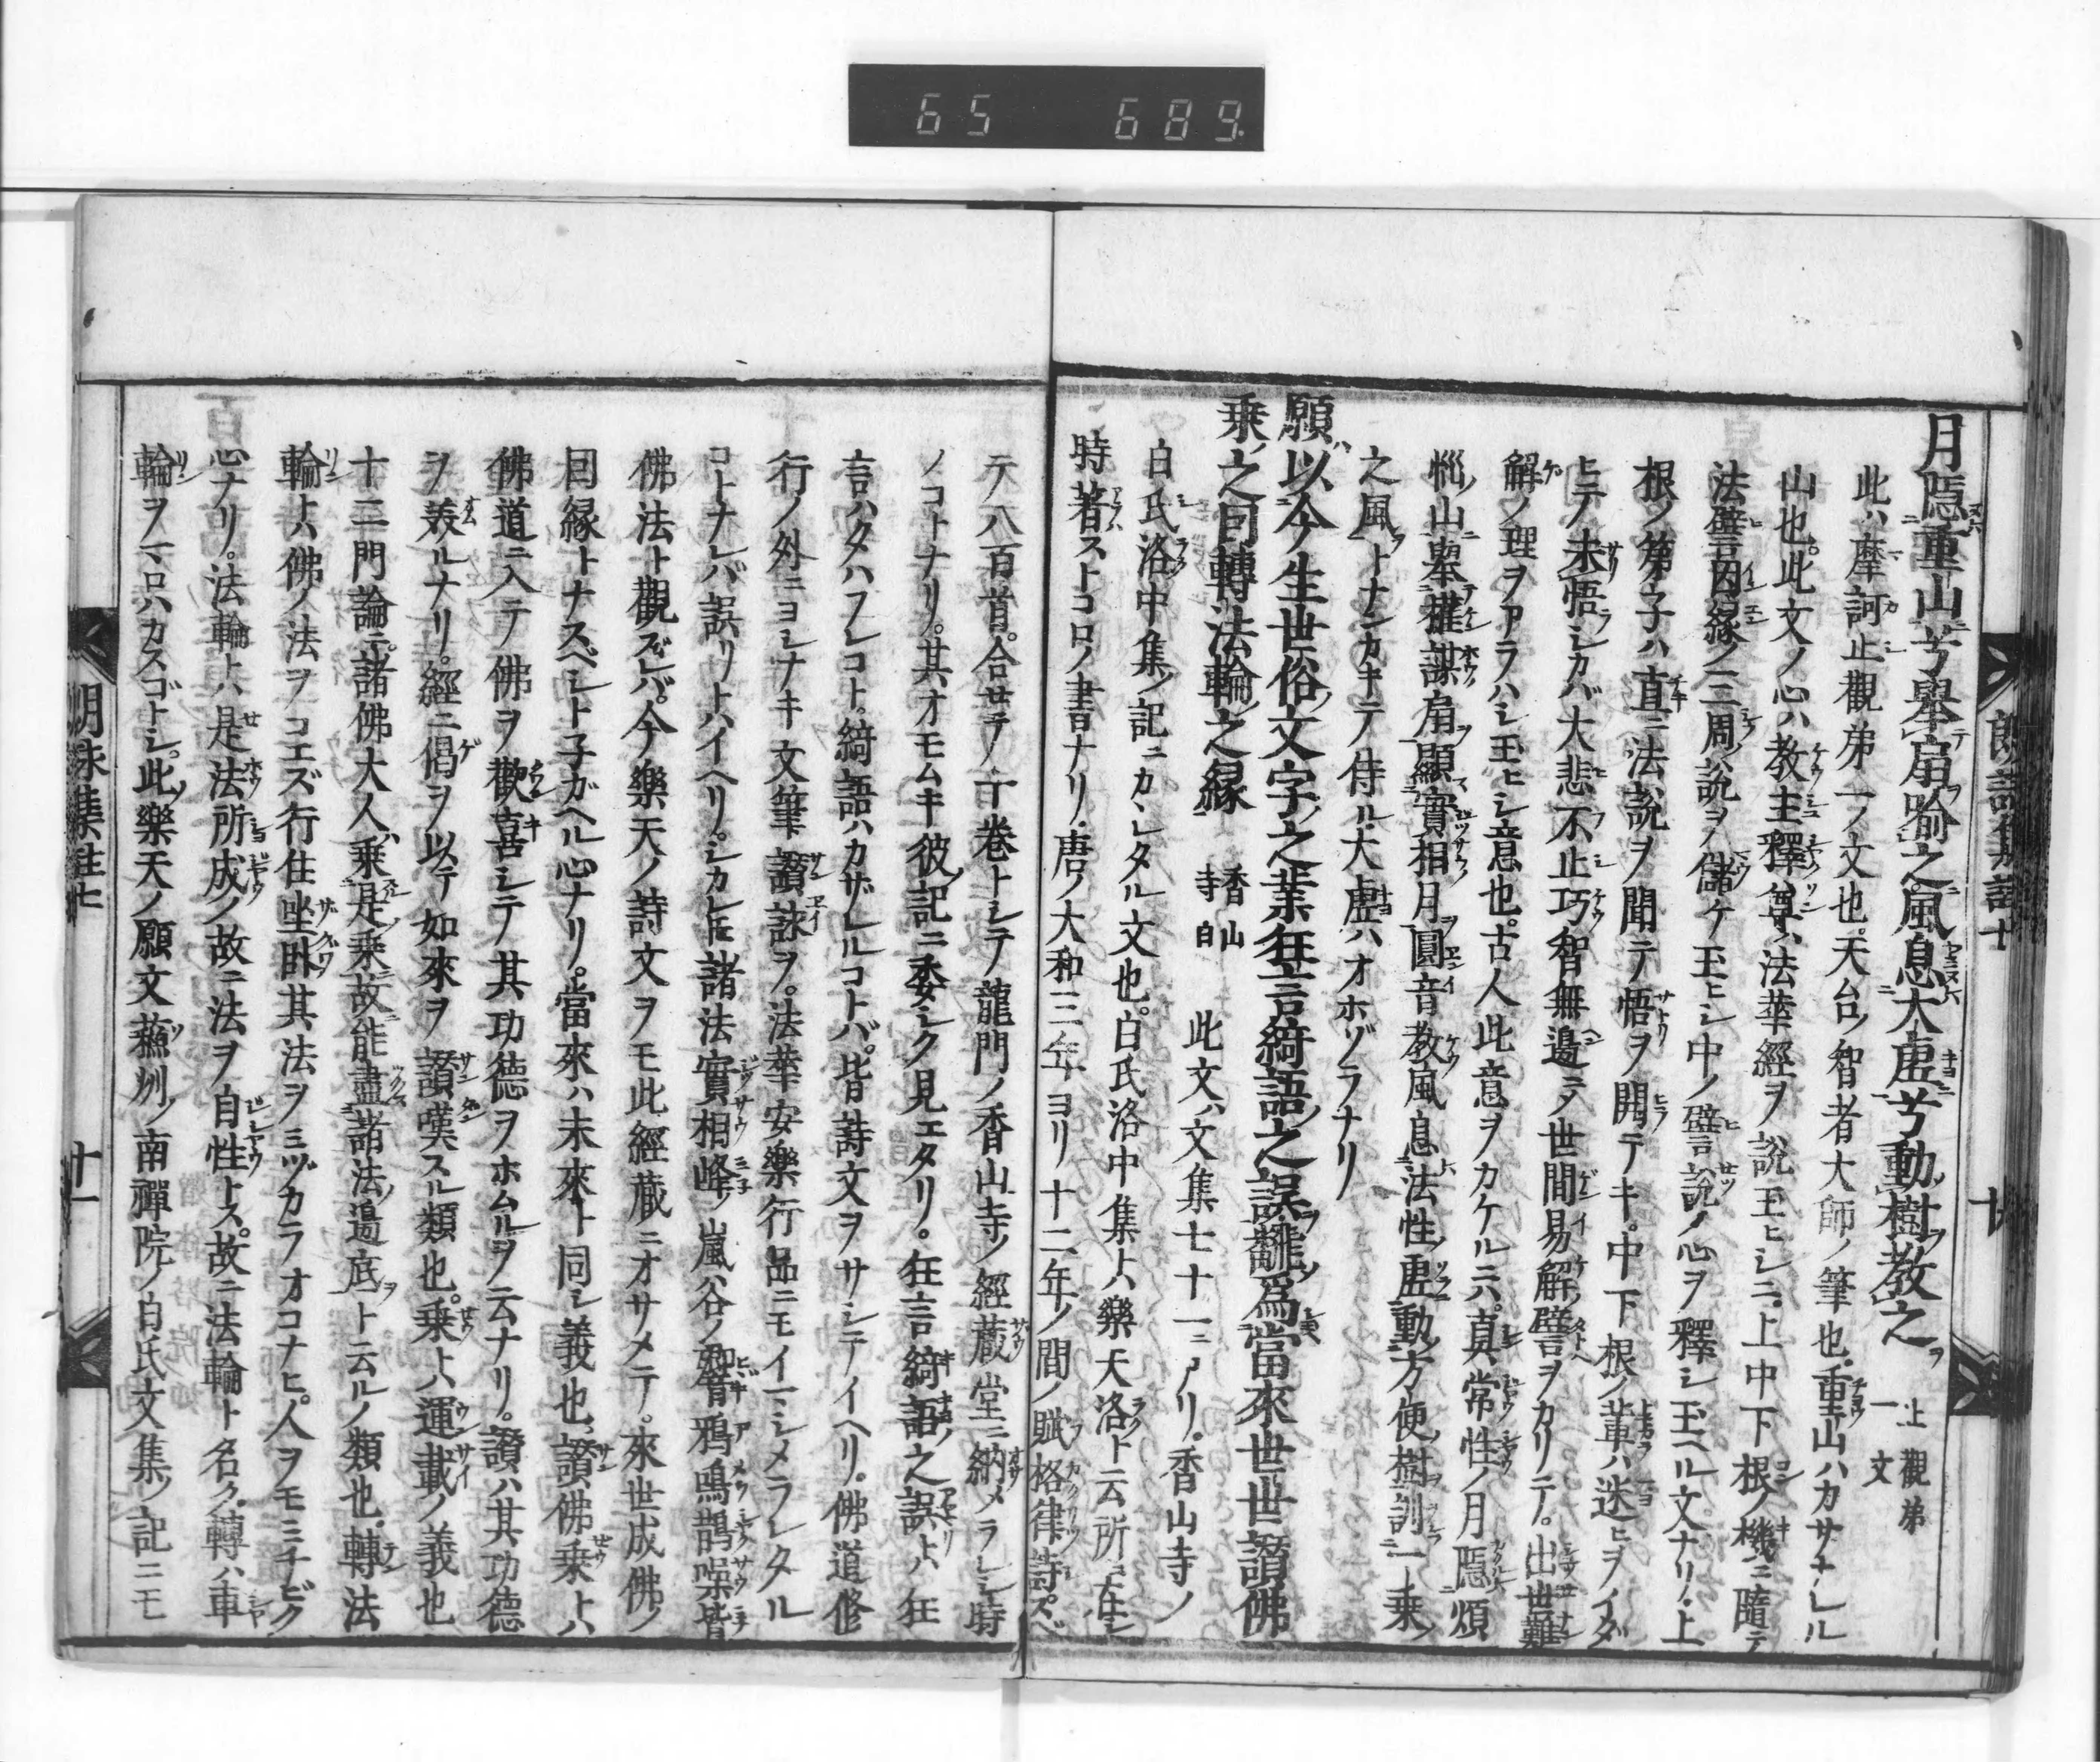 65 689
朗詠集註 十
月隱重山兮擧扇喩之風息大虛兮動樹敎之 止觀第一文
此ハ摩訶止觀第一ノ文也。天台ノ智者大師ノ筆也。重山ハカサナレル
山也。此文ノ心ハ教主釋尊ハ法華經ヲ説玉ヒシニ。上中下根ノ機ニ隨テ
法譬因緣ノ三周ノ説ヲ儲ケ玉ヒシ中ノ譬説ノ心ヲ釋シ玉ヘル文ナリ。上
根ノ弟子ハ直ニ法説ヲ聞テ悟ヲ開テキ。中下根ノ輩ハ迷ヒヲイダ
ヒテ未悟シカバ大悲不止巧智無邊ニシテ世間易解譬ヲカリテ。出世難
解ノ理ヲアラハシ玉ヒシ意也。古人此意ヲカケルニハ。眞常性ノ月隱煩
惱ノ山擧權謀扇顯實相月圓音教風息法性虛動方便樹訓一乘
之風トナンカキテ侍ル。大虛ハオホゾラナリ
願以今生世俗文字之業狂言綺語之誤飜爲當來世世讃佛
乘之因轉法輪之緣 香山寺白 此文ハ文集七十一ニアリ。香山寺ノ
白氏洛中集ノ記ニカヽレタル文也。白氏洛中集トハ樂天洛ト云所ニ在シ
時著ストコロノ書ナリ。唐ノ大和三年ヨリ十二年ノ間ノ賦格律詩スベ
テ八百首。合セテ十卷トシテ龍門ノ香山寺ノ經藏堂ニ納メラレシ時
ノコトナリ。其オモムキ彼記ニ委シク見エタリ。狂言綺語ノ之誤トハ狂
言ハタハフレコト。綺語ハカザレルコトバ。皆詩文ヲサシテイヘリ。佛道修
行ノ外ニヨシナキ文筆讃詠ヲ。法華安樂行品ニモイマシメラレタル
コトナレバ誤リトハイヘリ。シカレ𪜈諸法實相峰ノ嵐谷ノ響鴉鳴鵲噪皆
佛法ト觀ズレバ。今樂天ノ詩文ヲモ此經藏ニオサメテ。來世成佛ノ
因緣トナスベシト子ガヘル心ナリ。當來ハ未來ト同シ義也。讃佛乘トハ
佛道ニ入テ佛ヲ歡喜シテ其功德ヲホムルヲ云ナリ。讃ハ其功德
ヲ羨ルナリ。經ニ偈ヲ以テ如來ヲ讃嘆スル類也。乘トハ運載ノ義也
十二門論ニ諸佛大人ハ乘是乘故能盡諸法ノ邊底ト云ルノ類也。轉法
輪トハ佛ノ法ヲコエズ行住坐臥其法ヲミヅカラオコナヒ。人ヲモミチビク
心ナリ。法輪トハ是法所成ノ故ニ法ヲ自性トス。故ニ法輪ト名ク。轉ハ車
輪ヲマロハカスゴトシ。此樂天ノ願文蘇州ノ南禪院ノ白氏文集ノ記ニモ
朗詠集註七 十一